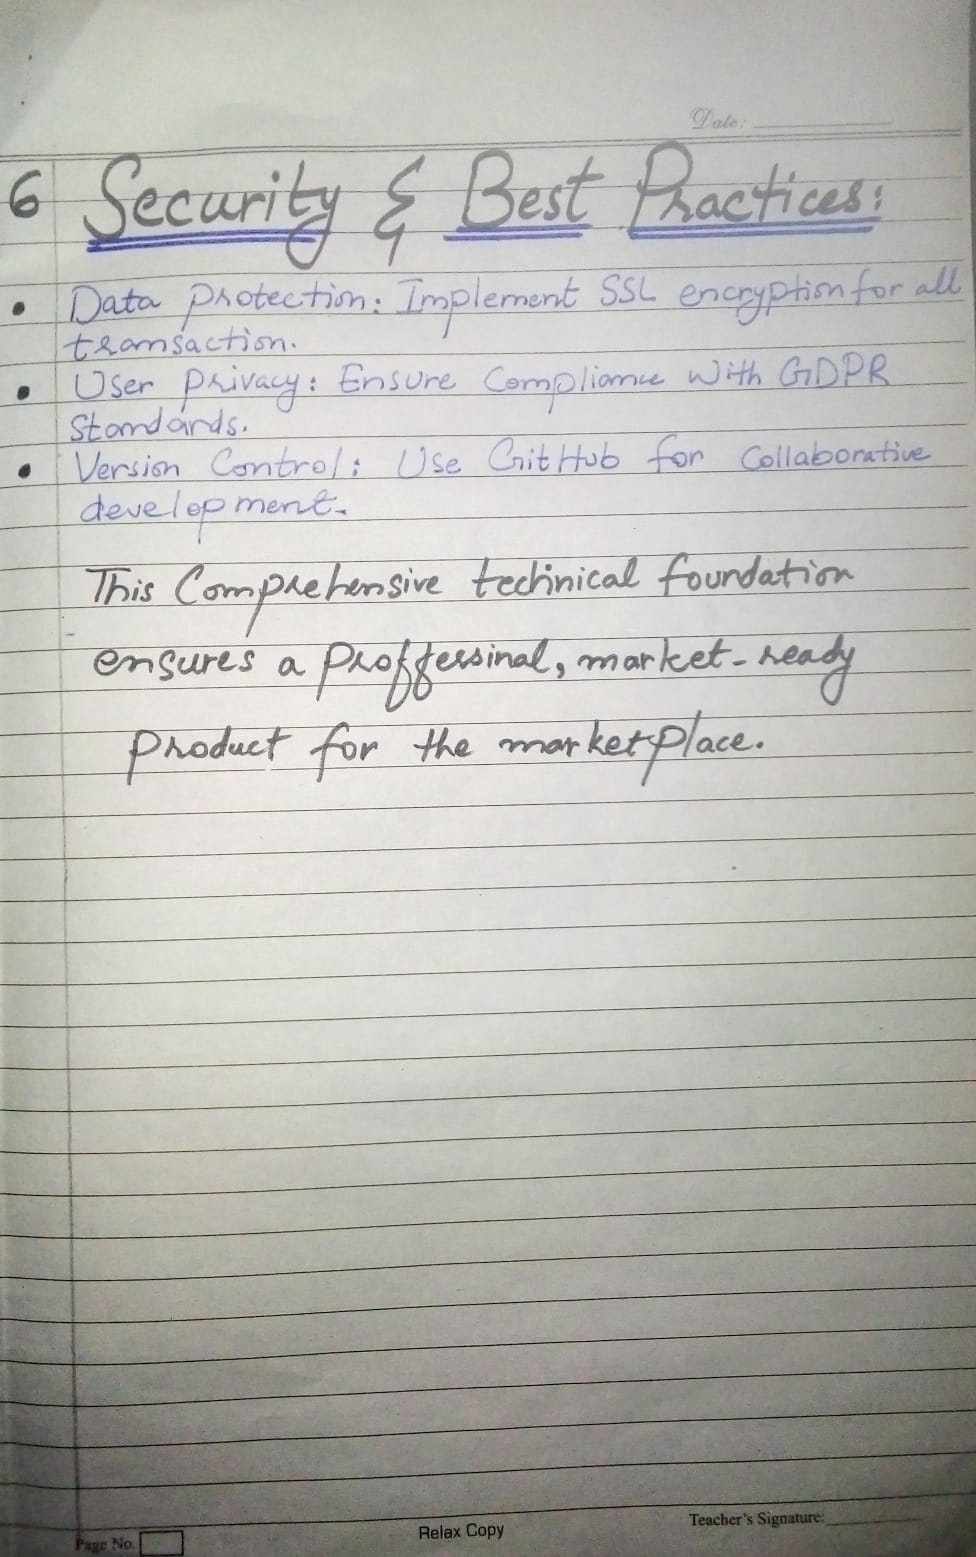 Date:
6 Security & Best Practices:
• Data Protection: Implement SSL encryption for all
transaction.
• User Privacy: Ensure Compliance With GDPR
Standards.
• Version Control: Use GitHub for Collaborative
development.
This Comprehensive technical foundation
ensures a proffessinal, market-ready
product for the marketplace.
Page No.
Relax Copy
Teacher's Signature: